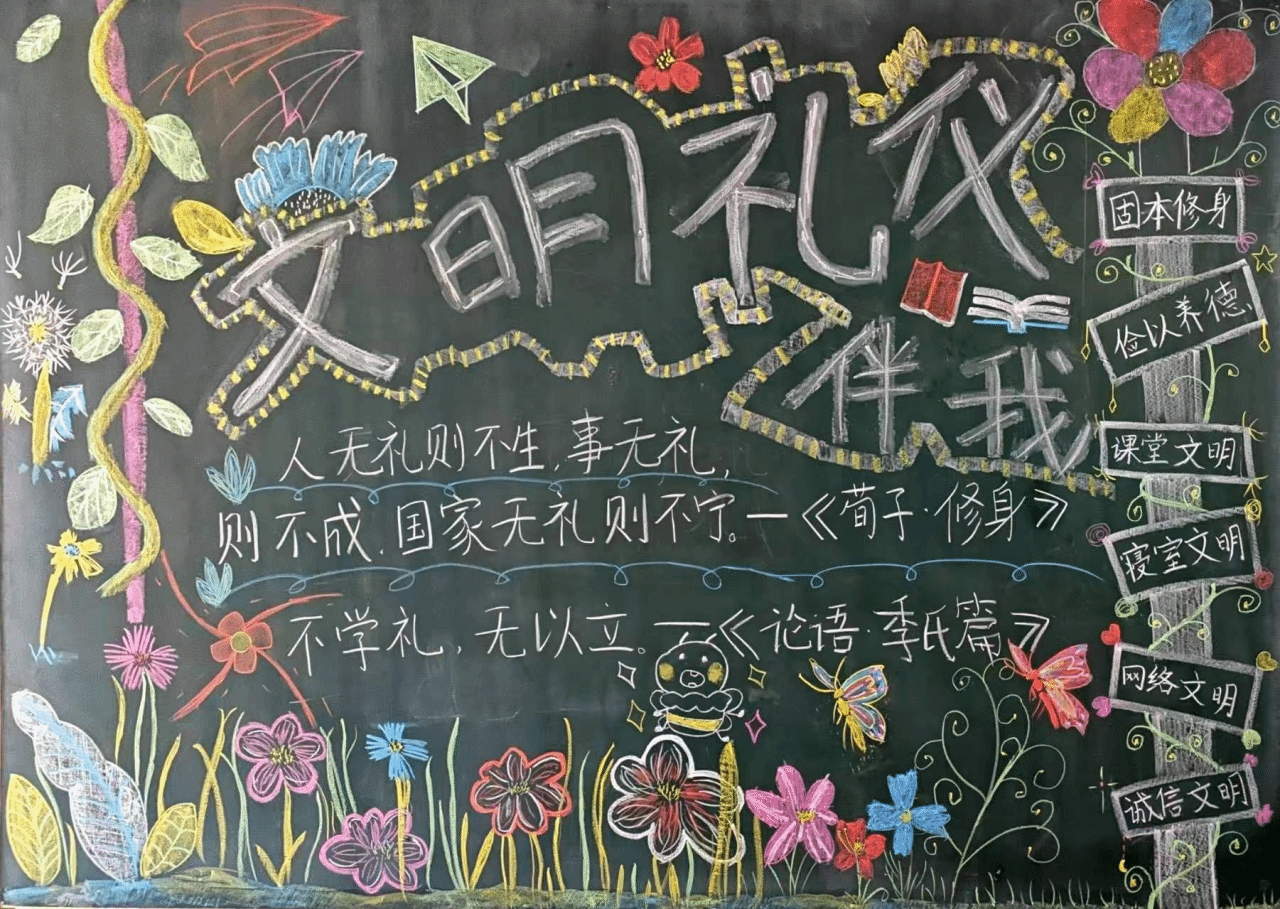 文明礼仪
伴我
人无礼则不生,事无礼,
则不成,国家无礼则不宁。—《荀子·修身》
不学礼,无以立。—《论语·季氏篇》
固本修身
俭以养德
课堂文明
寝室文明
网络文明
诚信文明